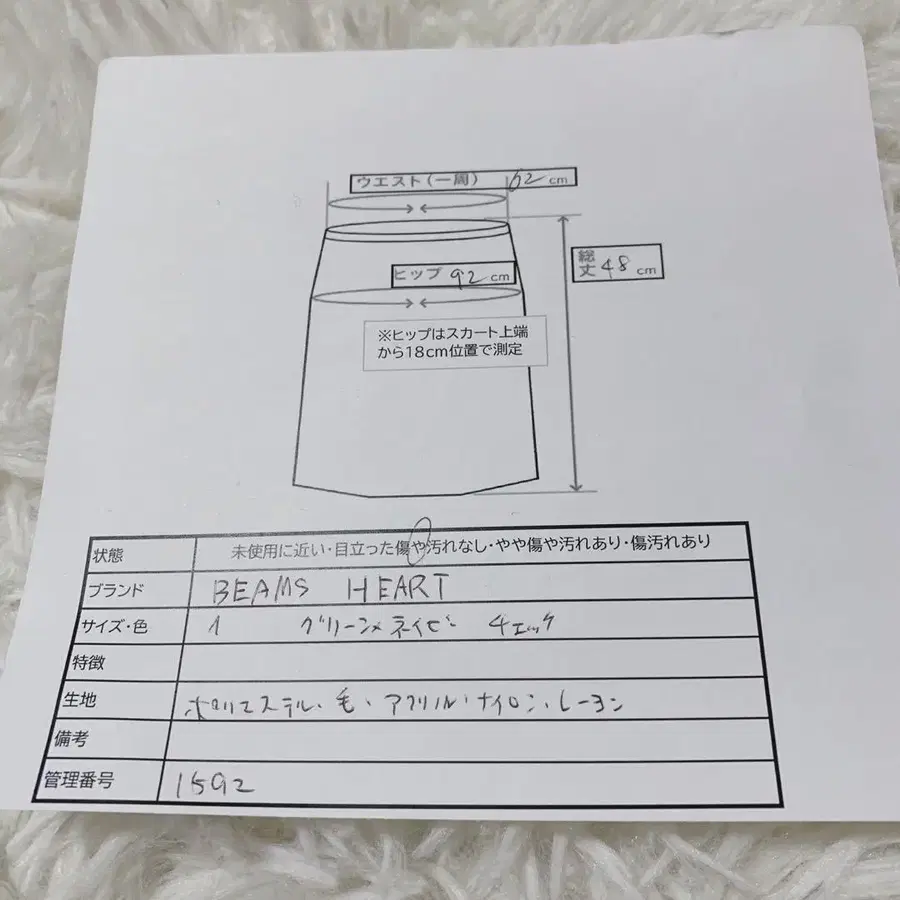 ウエスト(一周) 62 cm
ヒップ 92 cm
総丈 48 cm
※ヒップはスカート上端
から18cm位置で測定
状態 未使用に近い・目立った傷や汚れなし・やや傷や汚れあり・傷汚れあり
ブランド BEAMS HEART
サイズ・色 1 グリーン×ネイビー チェック
特徴
生地 ポリエステル・毛・アクリル・ナイロン・レーヨン
備考
管理番号 1592